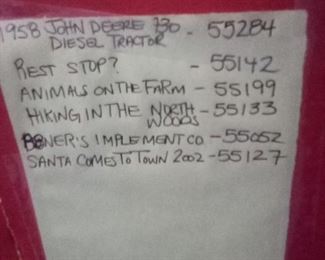 1958 JOHN DEERE 730 - 55284
DIESEL TRACTOR
REST STOP? - 55142
ANIMALS ON THE FARM - 55199
HIKING IN THE NORTH WOODS - 55133
BONER'S IMPLEMENT CO - 55052
SANTA COMES TO TOWN 2002 - 55127